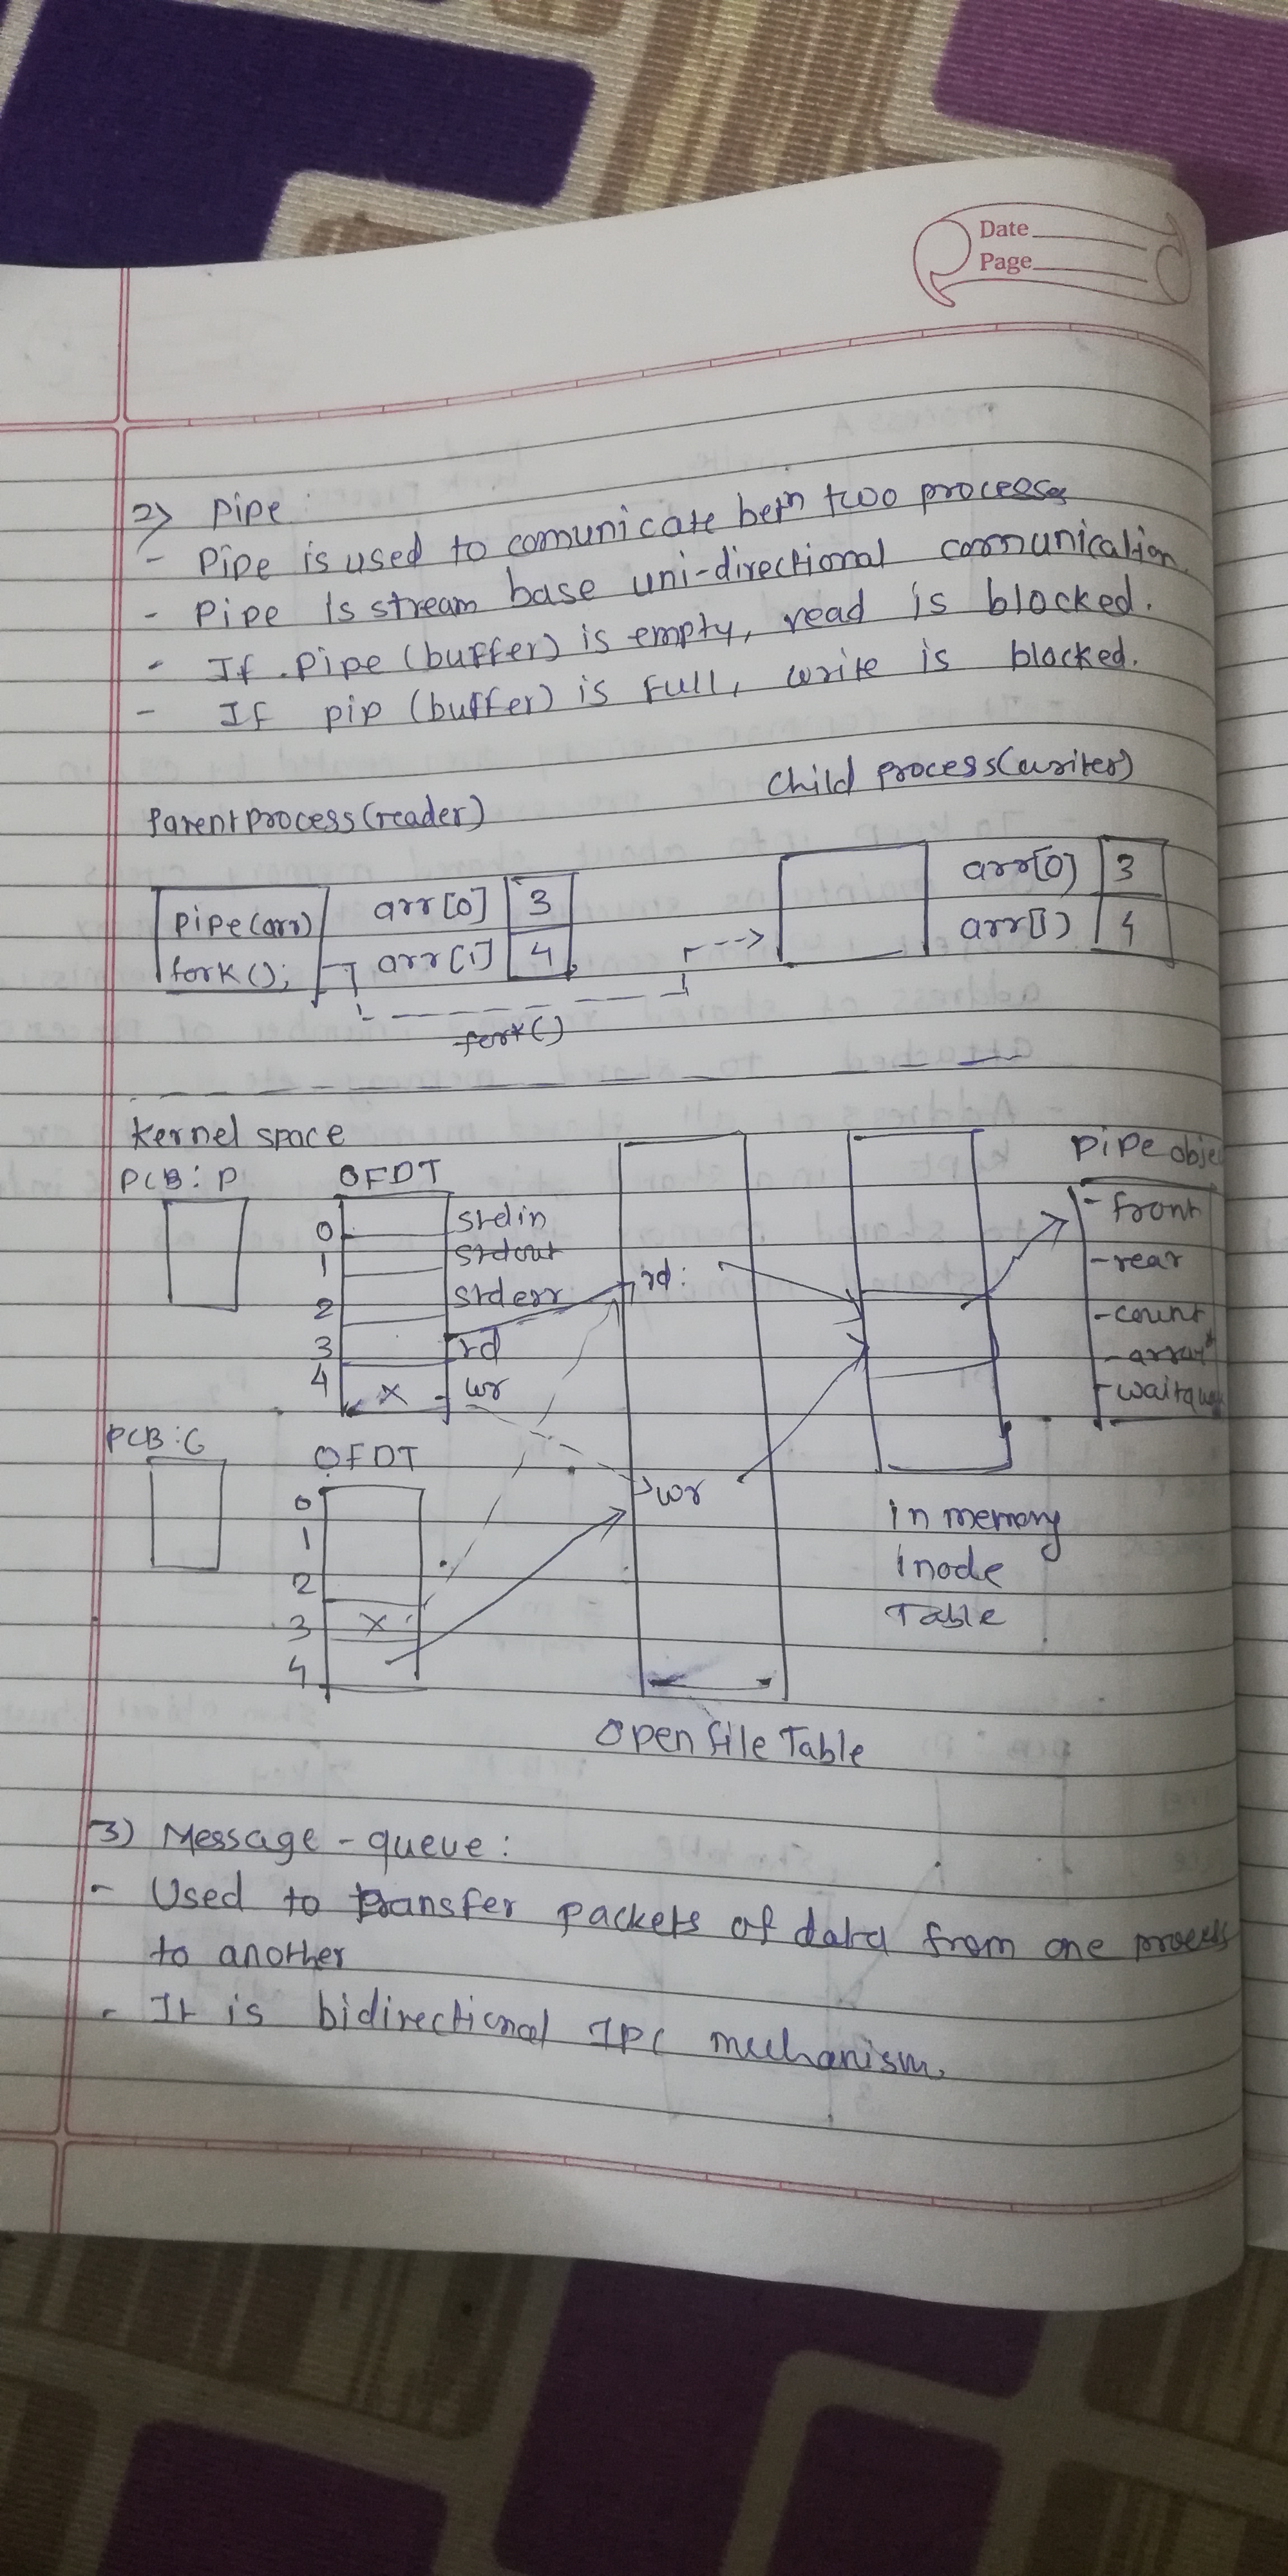 Date
Page
2> pipe :
- Pipe is used to comunicate betn two processes
- Pipe is stream base uni-directional comunication.
- If Pipe (buffer) is empty, read is blocked.
- If pip (buffer) is full, write is blocked.
Parent process(reader)
Child process(writer)
pipe(arr)
fork();
arr[0] 3
arr[1] 4
fork()
arr[0] 3
arr[1] 4
Kernel space
PCB : P
OFDT
0 stdin
1 stdout
2 stderr
3 rd
4 x wr
PCB : C
OFDT
0
1
2
3 x
4
rd :
wr
Open file Table
in memory
inode
Table
Pipe obje
- front
- rear
- count
- array
3) Message - queue :
- Used to transfer packets of data from one process
to another
- It is bidirectional IPC mechanism.